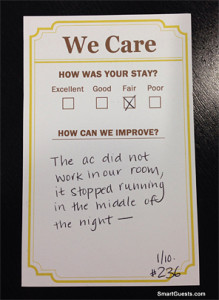 We Care
HOW WAS YOUR STAY?
Excellent Good Fair Poor
HOW CAN WE IMPROVE?
The ac did not
work in our room,
it stopped running
in the middle of
the night —
1/10.
#236
SmartGuests.com